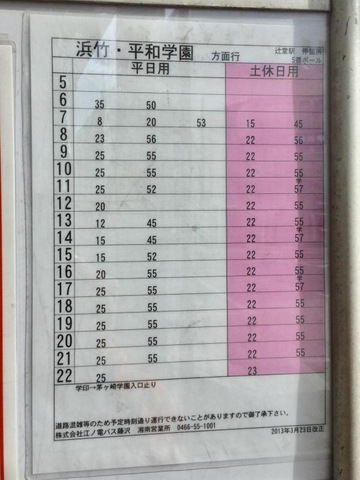 浜竹・平和学園 方面行 辻堂駅 停留所
5番ポール
平日用 土休日用
5
6 35 50
7 8 20 53 15 45
8 23 56 22 56
9 25 55 22 55
10 25 55 22 55
学
11 25 52 22 57
12 20 22 55
13 12 45 22 55
学
14 15 45 22 57
15 15 52 22 55
16 20 55 22 55
学
17 25 55 22 57
18 25 55 22 55
19 25 55 22 55
20 25 55 22 55
21 25 55 22 55
22 25 23
学印→茅ヶ崎学園入口止り
道路混雑等のため予定時刻通り運行できないことがありますので御了承下さい。
株式会社江ノ電バス藤沢 湘南営業所 0466-55-1001 2013年3月23日改正